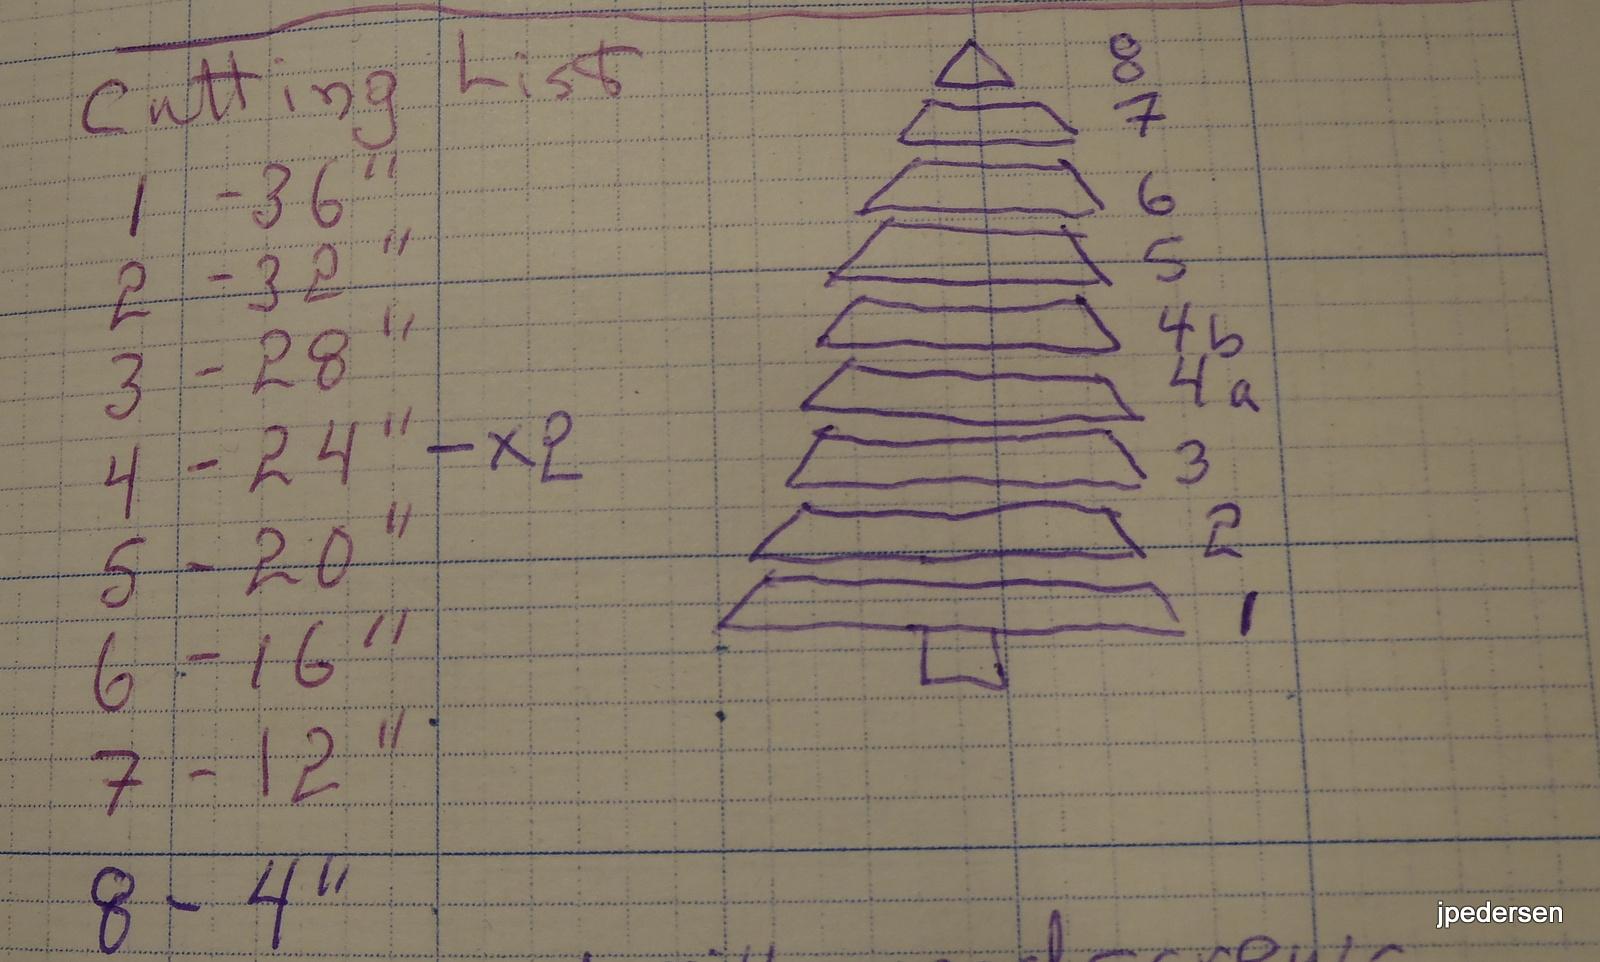 Cutting List
1 - 36"
2 - 32"
3 - 28"
4 - 24" - x2
5 - 20"
6 - 16"
7 - 12"
8 - 4"
8
7
6
5
4b
4a
3
2
1
jpedersen